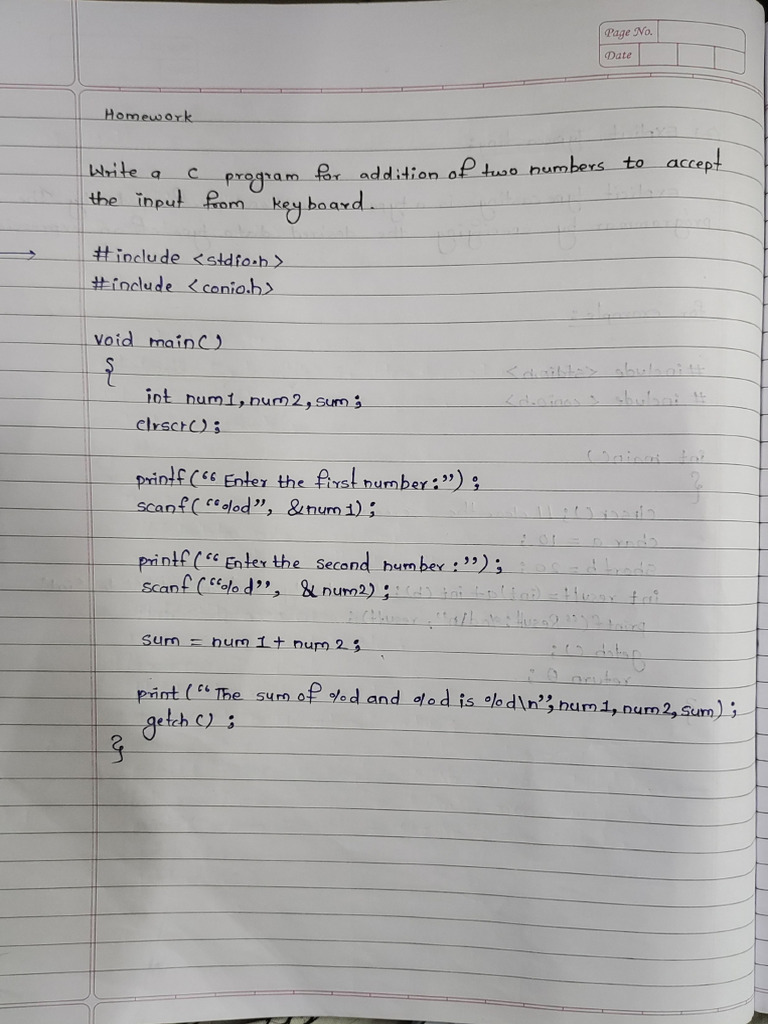 Page No.
Date
Homework
Write a C program for addition of two numbers to accept
the input from keyboard.
→ #include <stdio.h>
#include <conio.h>
void main()
{
int num1, num2, sum;
clrscr();
printf(“Enter the first number:”);
scanf(“%d”, &num1);
printf(“Enter the second number:”);
scanf(“%d”, &num2);
sum = num1 + num2;
print(“The sum of %d and %d is %d\n”, num1, num2, sum);
getch();
}